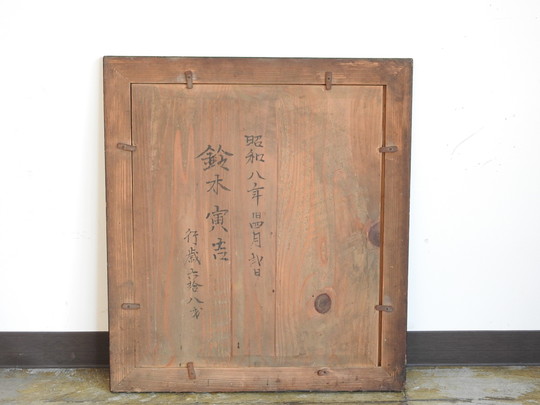 昭和八年四月弐日
鈴木寅吉
行歳六拾八才